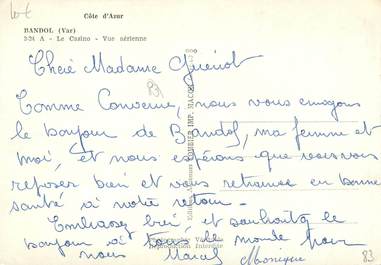 Côte d'Azur
BANDOL (Var)
2-24 A - Le Casino - Vue aérienne
Cheré Madame Guénot
Comme Convenue, nous vous envoyons
le bonjour de Bandol, ma femme et
moi, et nous espérons que vous vous
reposer bien et vous retrouve en bonne
santé à notre retour.
Embrassez bien, et souhaitez le
bonjour à tous le monde pour
nous Marcel Monique
Reproduction Interdite
83